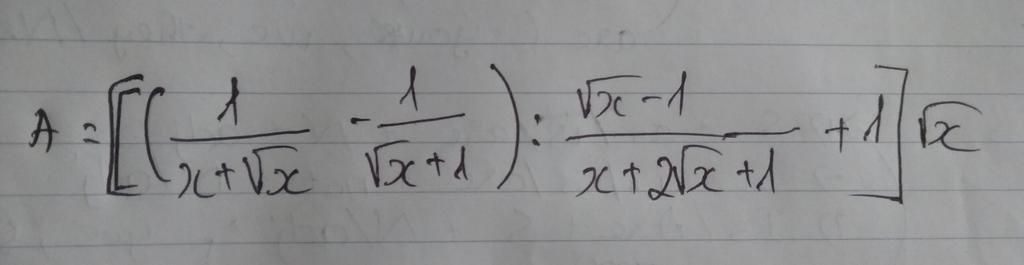 A = [(1/(x+√x) - 1/(√x+1)) : (√x-1)/(x+2√x+1) + 1]√x